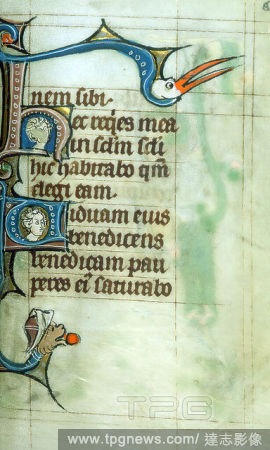 nem sibi.
Hec reqies mea
in sclm scli
hic habitabo qm
elegi eam.
Viduam eius
benedicens
benedicam pau
peres ei saturabo
TPG
www.tpgnews.com/ 達志影像